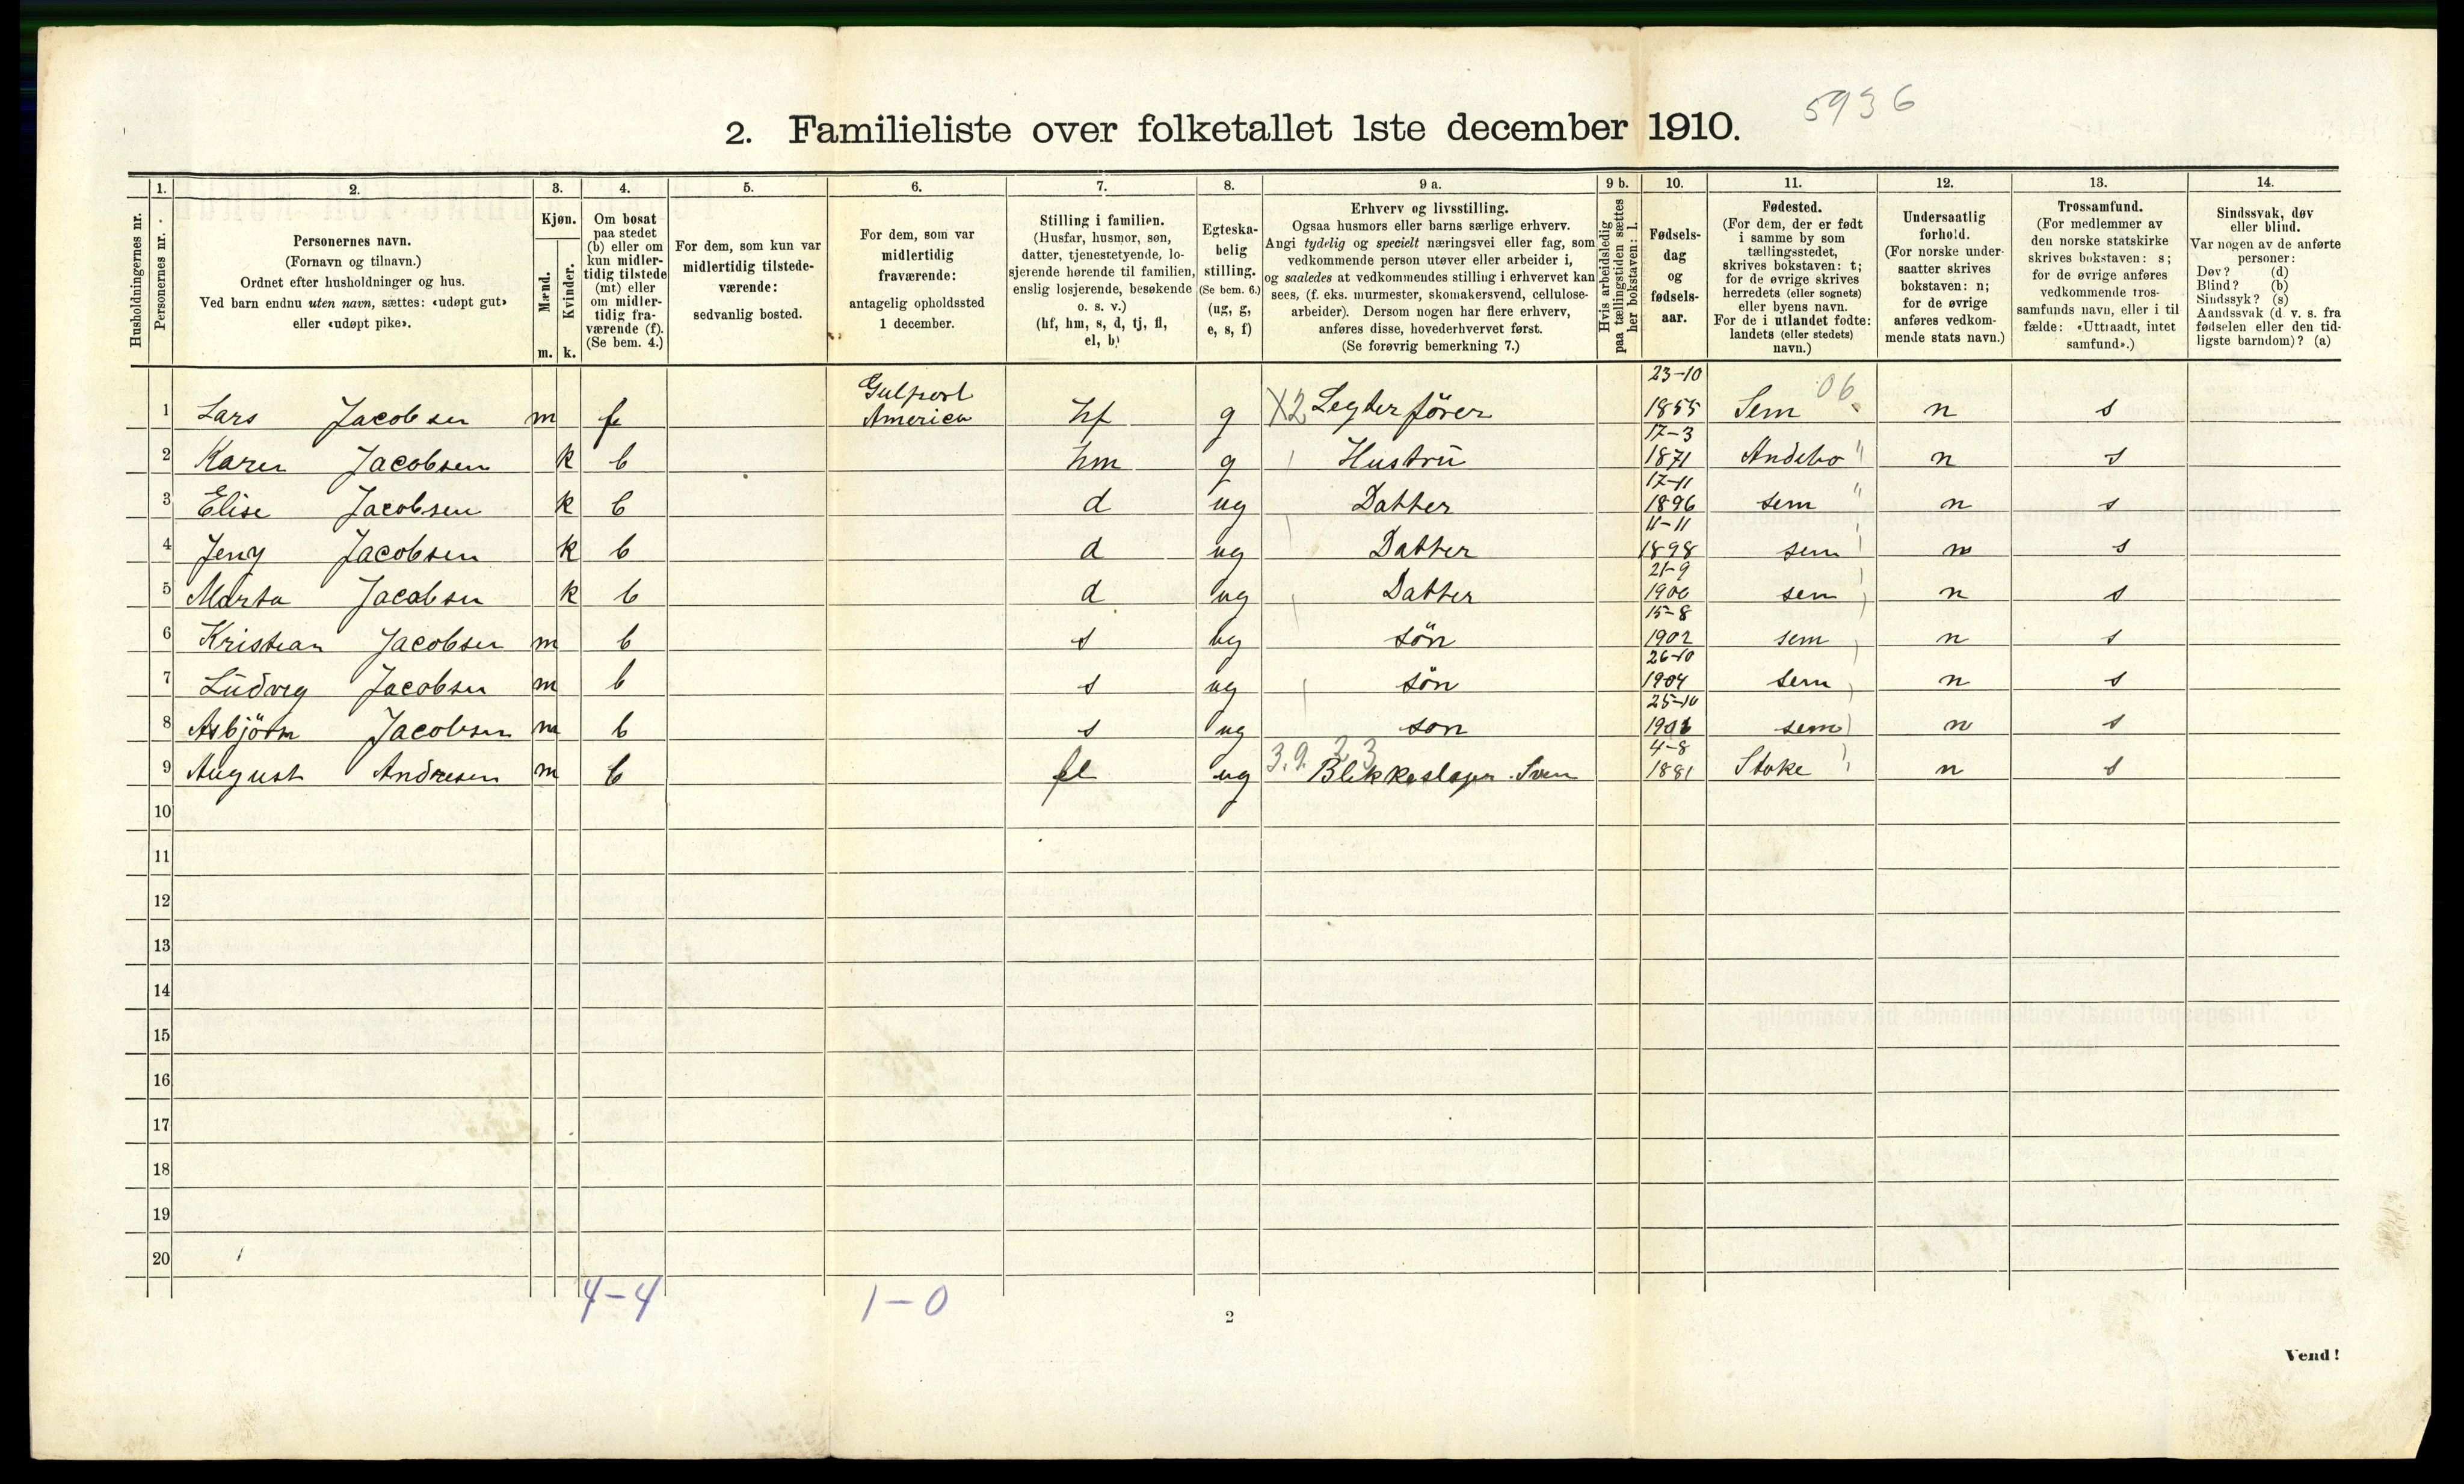 5936
2. Familieliste over folketallet 1ste december 1910.
1. 2. 3. 4. 5. 6. 7. 8. 9 a. 9 b. 10. 11. 12. 13. 14.
Husholdningernes nr.
Personernes nr.
Personernes navn.
(Fornavn og tilnavn.)
Ordnet efter husholdninger og hus.
Ved barn endnu uten navn, sættes: «udøpt gut»
eller «udøpt pike».
Kjøn.
Mænd.
Kvinder.
m. k.
Om bosat
paa stedet
(b) eller om
kun midler-
tidig tilstede
(mt) eller
om midler-
tidig fra-
værende (f).
(Se bem. 4.)
For dem, som kun var
midlertidig tilstede-
værende:
sedvanlig bosted.
For dem, som var
midlertidig
fraværende:
antagelig opholdssted
1 december.
Stilling i familien.
(Husfar, husmor, søn,
datter, tjenestetyende, lo-
sjerende hørende til familien,
enslig losjerende, besøkende
o. s. v.)
(hf, hm, s, d, tj, fl,
el, b)
Egteska-
belig
stilling.
(Se bem. 6.)
(ug, g,
e, s, f)
Erhverv og livsstilling.
Ogsaa husmors eller barns særlige erhverv.
Angi tydelig og specielt næringsvei eller fag, som
vedkommende person utøver eller arbeider i,
og saaledes at vedkommendes stilling i erhvervet kan
sees, (f. eks. murmester, skomakersvend, cellulose-
arbeider). Dersom nogen har flere erhverv,
anføres disse, hovederhvervet først.
(Se forøvrig bemerkning 7.)
Hvis arbeidsledig
paa tællingstiden sættes
her bokstaven: l.
Fødsels-
dag
og
fødsels-
aar.
Fødested.
(For dem, der er født
i samme by som
tællingsstedet,
skrives bokstaven: t;
for de øvrige skrives
herredets (eller sognets)
eller byens navn.
For de i utlandet fødte:
landets (eller stedets)
navn.)
Undersaatlig
forhold.
(For norske under-
saatter skrives
bokstaven: n;
for de øvrige
anføres vedkom-
mende stats navn.)
Trossamfund.
(For medlemmer av
den norske statskirke
skrives bokstaven: s;
for de øvrige anføres
vedkommende tros-
samfunds navn, eller i til-
fælde: «Uttraadt, intet
samfund».)
Sindssvak, døv
eller blind.
Var nogen av de anførte
personer:
Døv? (d)
Blind? (b)
Sindssyk? (s)
Aandssvak (d. v. s. fra
fødselen eller den tid-
ligste barndom)? (a)
Gulport 23-10 06
1 Lars Jacobsen m f America hf g X2 fører 1855 Sem n s
17-3
2 Karen Jacobsen k b hm g Hustrü 1871 Andebo " n s
17-11
3 Elise Jacobsen k b d ug Datter 1896 sem " n s
11-11
4 Jeny Jacobsen k b d ug Datter 1898 sem n s
21-9
5 Marta Jacobsen k b d ug Datter 1900 sem n s
15-8
6 Kristian Jacobsen m b s ug sön 1902 sem n s
26-10
7 Lüdvig Jacobsen m b s ug sön 1904 sem n s
25-10
8 Asbjörn Jacobsen m b s ug son 1906 sem n s
3.9. 23 4-8
9 August Andresen m b fl ug Blikkeslager Sven 1881 Stoke n s
10
11
12
13
14
15
16
17
18
19
20
4-4 1-0
2
Vend!